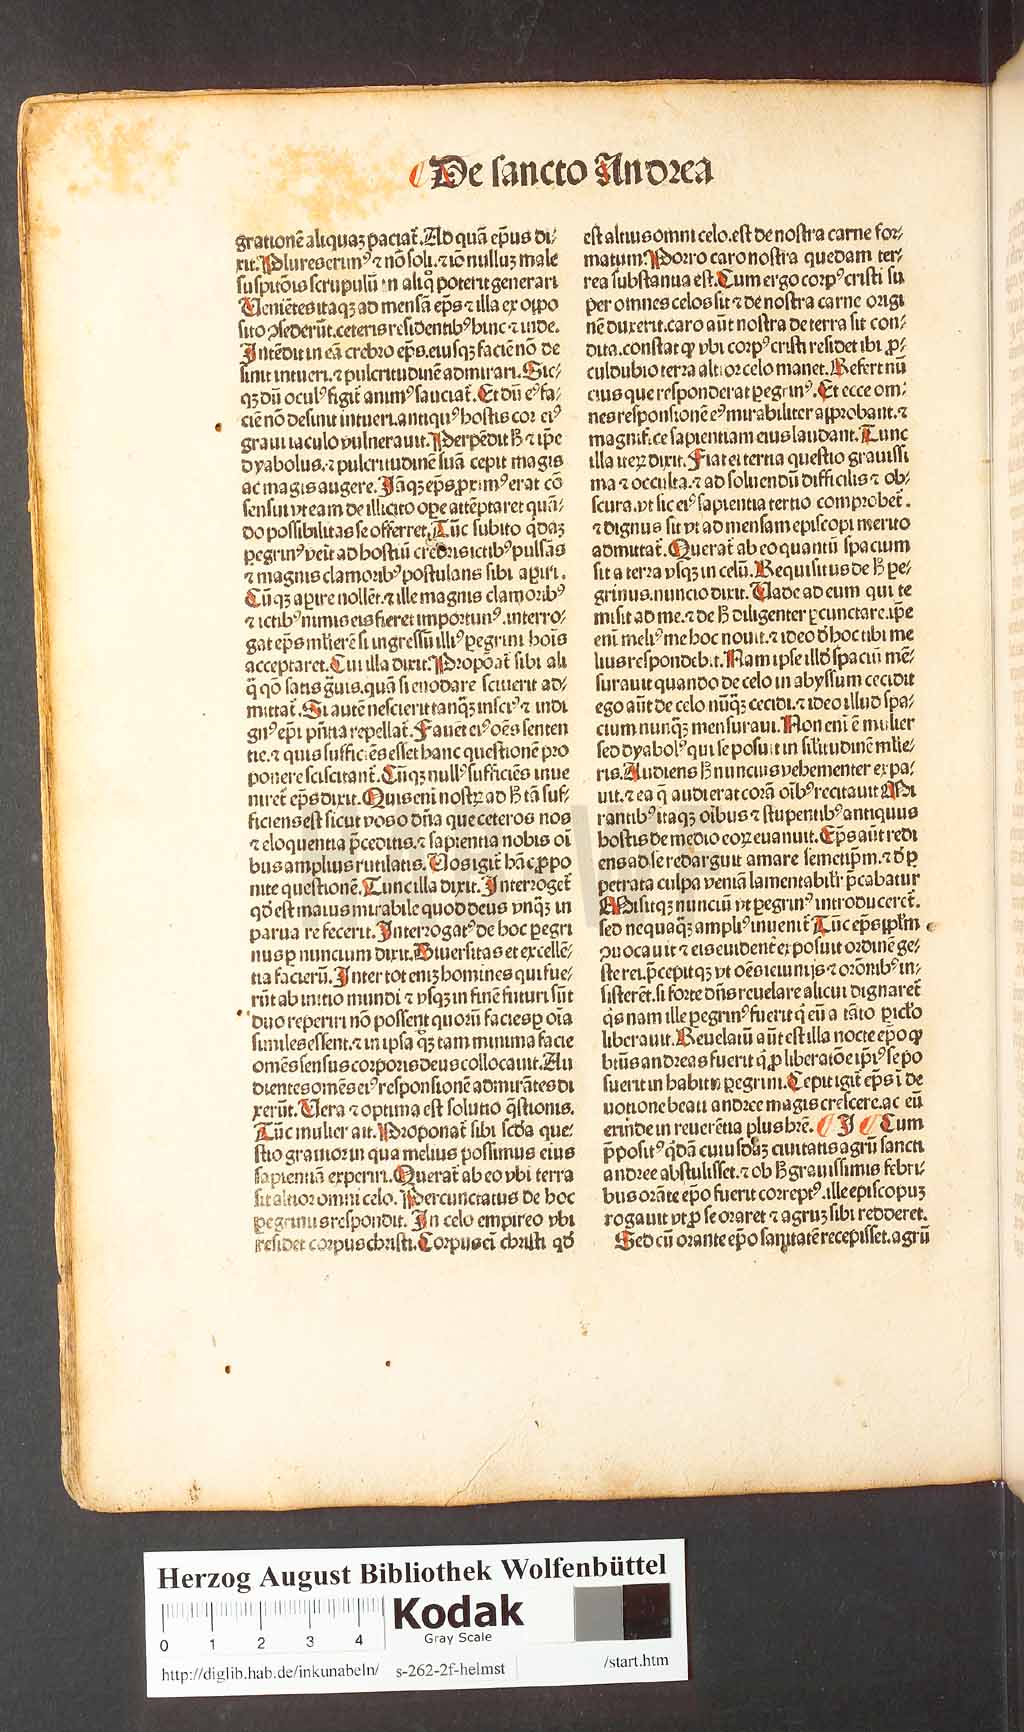 De sancto Andrea
grationē aliquaꝫ paciat̄. Ad quā ep̄us di⸗
xit. Plures erimꝰ ⁊ nō soli. ⁊ iō nulluꝫ male
suspitōis scrupulū in aliq̊ poterit generari
Veniētes itaqꝫ ad mensā ep̄s ⁊ illa ex oppo
sito ꝯsederūt. ceteris residentibꝰ hinc ⁊ inde.
Intēdit in eā crebro ep̄s. eiusqꝫ faciē nō de
sinit intueri. ⁊ pulcritudinē admirari. Sic⸗
qꝫ dū oculꝰ figit̄ animꝰ sauciat̄. Et dū eꝰ fa⸗
ciē nō desinit intueri. antiquꝰ hostis cor eiꝰ
graui iaculo vulnerauit. Perpēdit hꝫ ⁊ ip̄e
dyabolus. ⁊ pulcritudinē suā cepit magis
ac magis augere. Iāqꝫ ep̄s proximꝰ erat cō
sensui vt eam de illicito ope attēptaret quā⸗
do possibilitas se offerret. Tūc subito q̇daꝫ
ꝑegrinꝰ veīt ad hostiū crebris ictibꝰ pulsās
⁊ magnis clamoribꝰ postulans sibi aꝑiri.
Cūqꝫ aꝑire nollēt. ⁊ ille magnis clamoribꝰ
⁊ ictibꝰ nimis eis fieret importunꝰ. interro⸗
gat ep̄s ml̄ierē si ingressū illiꝰ ꝑegrini hoīs
acceptaret. Cui illa dixit. Proponat̄ sibi ali
q̄ q̄o satis g̈uis. quā si enodare sciuerit ad⸗
mittat̄. Si autē nescierit tanq̄ꝫ insciꝰ ⁊ indi
gnꝰ ep̄i pn̄tia repellat̄. Fauēt eiꝰ oēs senten
tie. ⁊ quis sufficiēs esset hanc questionē pro
ponere sciscitant̄. Cūqꝫ nullꝰ sufficiēs inue
niret̄ ep̄s dixit. Quis eni nostꝝ ad hꝫ tā suf⸗
ficiens est sicut vos o dn̄a que ceteros nos
⁊ eloquentia p̄ceditis. ⁊ sapientia nobis oī
bus amplius rutilatis. Vos igit̄ hāc ꝓpo
nite questionē. Tunc illa dixit. Interroget̄
qd̓ est maius mirabile quod deus vnq̄ꝫ in
parua re fecerit. Interrogatꝰ de hoc ꝑegri
nus ꝑ nuncium dixit. Diuersitas et excellē⸗
tia facierū. Inter tot enīꝫ homines qui fue⸗
rūt ab initio mundi ⁊ vsqꝫ in finē futuri sūt
duo reperiri nō possent quorū facies ꝑ oīa
similes essent. ⁊ in ipsa q̄ꝫ tam minima facie
omēs sensus corporis deus collocauit. Au
dientes omēs eiꝰ responsionē admirātes di
xerūt. Vera ⁊ optima est solutio q̄stionis.
Tūc mulier ait. Proponat̄ sibi scd̓a que⸗
stio grauior in qua melius possimus eius
sapientiā experiri. Querat̄ ab eo vbi terra
sit altior omni celo. Percunctatus de hoc
ꝑegrinus respondit. In celo empireo vbi
residet corpus christi. Corpus eī christi qd̓
est altius omni celo. est de nostra carne for⸗
matum. Porro caro nostra quedam ter⸗
rea substantia est. Cum ergo corpꝰ cristi su
per omnes celos sit ⁊ de nostra carne origi
nē duxerit. caro aūt nostra de terra sit con⸗
dita. constat ꝙ vbi corpꝰ cristi residet ibi ꝓ⸗
culdubio terra altior celo manet. Refert nū
cius que responderat ꝑegrinꝰ. Et ecce om⸗
nes responsionē eꝰ mirabiliter approbant. ⁊
magnifice sapientiam eius laudant. Tunc
illa iteꝝ dixit. Fiat ei tertia questio grauissi
ma ⁊ occulta. ⁊ ad soluendū difficilis ⁊ ob⸗
scura. vt sic eiꝰ sapientia tertio comprobet̄.
⁊ dignus sit vt ad mensam episcopi merito
admittat̄. Querat̄ ab eo quantū spacium
sit a terra vsqꝫ in celū. Requisitus de hꝫ ꝑe⸗
grinus. nuncio dixit. Vade ad eum qui te
misit ad me. ⁊ de hꝫ diligenter ꝑcunctare. ip̄e
eni meliꝰ me hoc nouit. ⁊ ideo d̓ hoc tibi me
lius respondebit. Nam ipse illd̓ spaciū mē⸗
surauit quando de celo in abyssum cecidit
ego aūt de celo nūq̄ꝫ cecidi. ⁊ ideo illud spa⸗
cium nunq̄ꝫ mensuraui. Non eni ē mulier
sed dyabolꝰ qui se posuit in sil̄itudinē ml̄ie⸗
ris. Audiens hꝫ nuncius vehementer expa⸗
uit. ⁊ ea q̄ audierat corā oībꝰ recitauit Mi
rantibꝰ itaqꝫ oībus ⁊ stupentibꝰ antiquus
hostis de medio eoꝝ euanuit. Ep̄s aūt redi
ens ad se redarguit amare semetip̄m. ⁊ d̓ ꝑ
petrata culpa veniā lamentabilr̄ p̄cabatur
Misitqꝫ nunciū vt ꝑegrinꝰ introduceret̄.
sed nequaq̄ꝫ ampliꝰ inuenit̄ Tūc ep̄s ppl̄m
ꝯuocauit ⁊ eis euident̄ exposuit ordinē ge⸗
ste rei. p̄cepitqꝫ vt oēs ieiunijs ⁊ orōnibꝰ in⸗
sisterēt. si forte dn̄s reuelare alicui dignaret̄
q̇s nam ille ꝑegrinꝰ fuerit q̇ eū a tāto picl̓o
liberauit. Reuelatū aūt est illa nocte ep̄o ꝙ
btūs andreas fuerit q̇ ꝓ liberatōe ip̄iꝰ se po
suerit in habitū ꝑegrini. Cepit igit̄ ep̄s ī de
uotione beati andree magis crescere. ac eū
exinde in reuerētia plus hr̄e. I Cum
p̄positꝰ q̇dā cuiusdaꝫ ciuitatis agrū sancti
andree abstulisset. ⁊ ob hꝫ grauissimis febri⸗
bus orāte ep̄o fuerit correptꝰ. ille episcopuꝫ
rogauit vt ꝓ se oraret ⁊ agruꝫ sibi redderet.
Sed cū orante ep̄o sanitatē recepisset. agrū
Herzog August Bibliothek Wolfenbüttel
Kodak
Gray Scale
0 1 2 3 4
http://diglib.hab.de/inkunabeln/ s-262-2f-helmst /start.htm